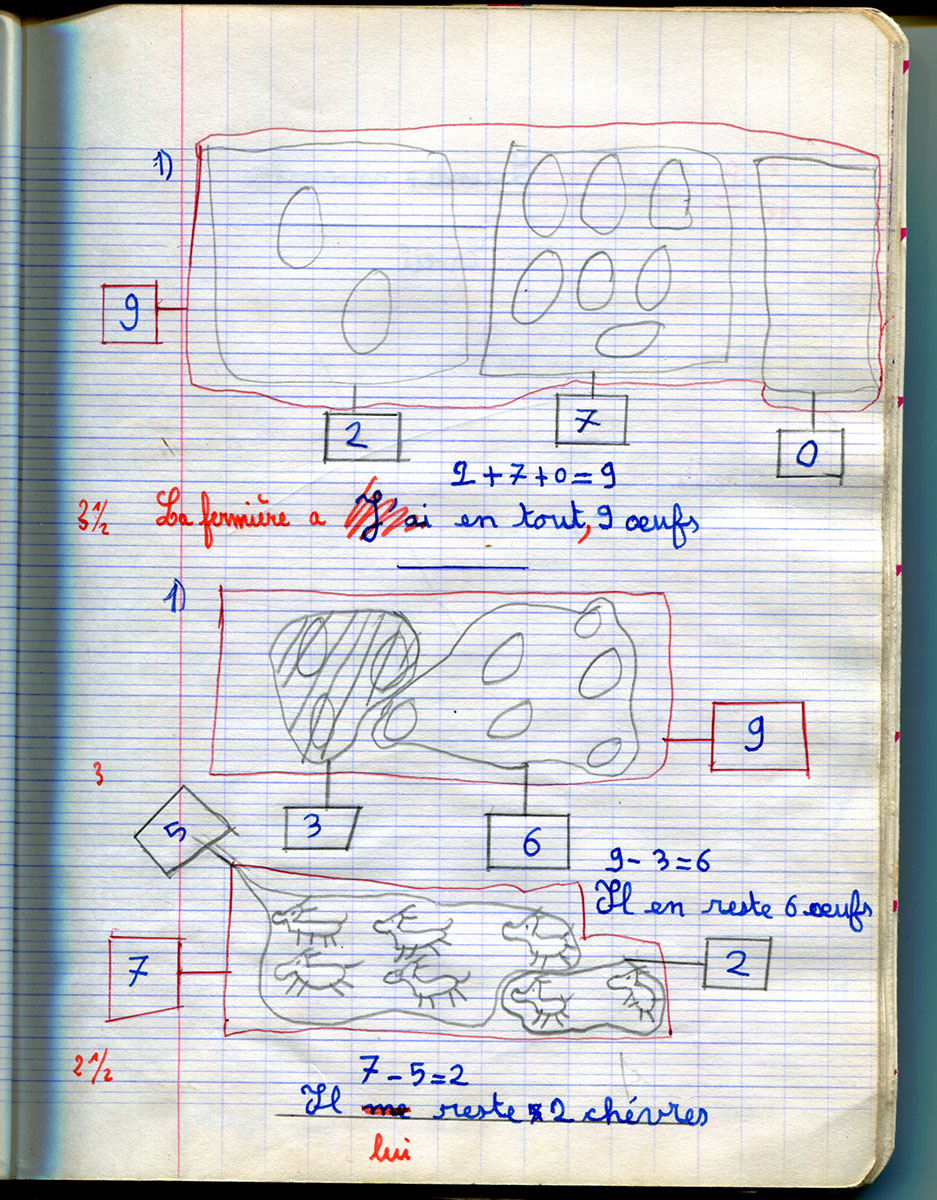 1)
9
2
7
0
2+7+0=9
3 1/2 La fermière a J'ai en tout, 9 œufs
1)
9
3
5
3
6
9-3=6
Il en reste 6 œufs
7
2
2 1/2
7-5=2
Il me reste 2 chévres
lui